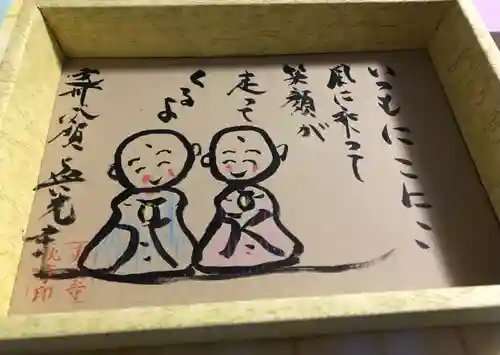 いつもにこにこ
風に乗って
笑顔が
走って
くるよ